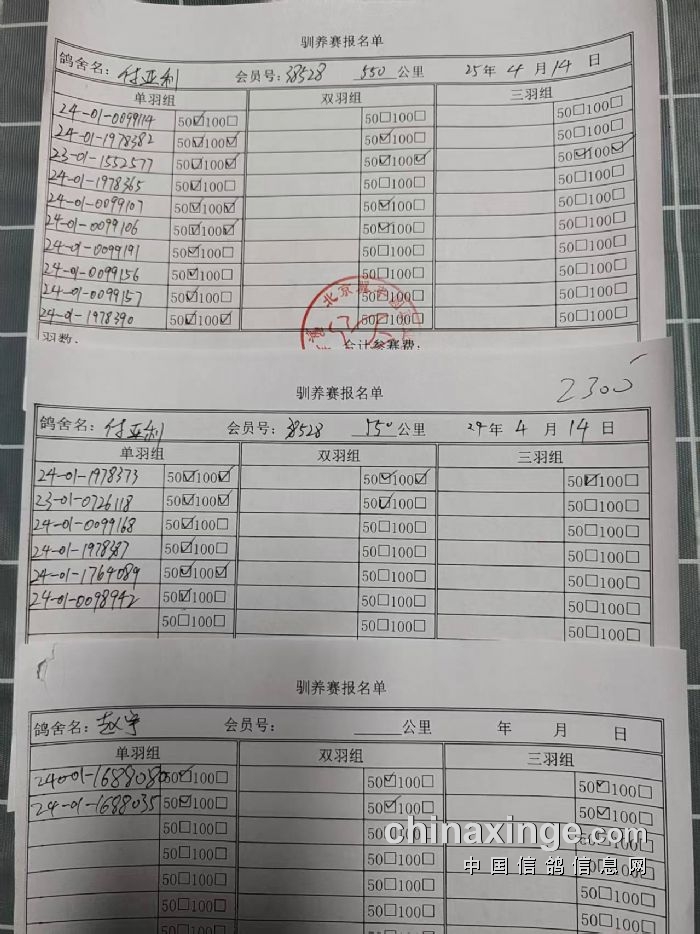 驯养赛报名单
鸽舍名：付亚利 会员号：38528 550 公里 25 年 4 月 14 日
单羽组 双羽组 三羽组
24-01-0099114 50☑100☐ 50☐100☐ 50☐100☐
24-01-1978382 50☑100☑ 50☑100☐ 50☐100☐
23-01-1552577 50☑100☑ 50☑100☑ 50☑100☑
24-01-1978365 50☑100☐ 50☐100☐ 50☐100☐
24-01-0099107 50☑100☑ 50☑100☐ 50☐100☐
24-01-0099106 50☑100☑ 50☑100☐ 50☐100☐
24-01-0099191 50☑100☐ 50☐100☐ 50☐100☐
24-01-0099156 50☑100☐ 50☐100☐ 50☐100☐
24-01-0099157 50☑100☐ 50☐100☐ 50☐100☐
24-01-1978390 50☑100☑ 50☐100☐ 50☐100☐
羽数： 合计参赛费：
北京
驯养赛报名单
2300
鸽舍名：付亚利 会员号：38528 550 公里 24 年 4 月 14 日
单羽组 双羽组 三羽组
24-01-1978373 50☑100☑ 50☑100☑ 50☑100☐
23-01-0726118 50☑100☑ 50☑100☐ 50☐100☐
24-01-0099168 50☑100☐ 50☐100☐ 50☐100☐
24-01-1978387 50☑100☐ 50☐100☐ 50☐100☐
24-01-1764089 50☑100☑ 50☐100☐ 50☐100☐
24-01-0098942 50☑100☐ 50☐100☐ 50☐100☐
50☐100☐ 50☐100☐ 50☐100☐
驯养赛报名单
鸽舍名：赵宇 会员号： 公里 年 月 日
单羽组 双羽组 三羽组
24-01-1688080 50☑100☐ 50☑100☐ 50☑100☐
24-01-1688035 50☑100☐ 50☑100☐ 50☑100☐
50☐100☐ 50☐100☐ 50☐100☐
50☐100☐ 50☐100☐ 50☐100☐
50☐100☐ 50☐100☐ 50☐100☐
50☐100☐ 50☐100☐ 50☐100☐
50☐100☐ 50☐100☐ 50☐100☐
chinaxinge.com
中国信鸽信息网